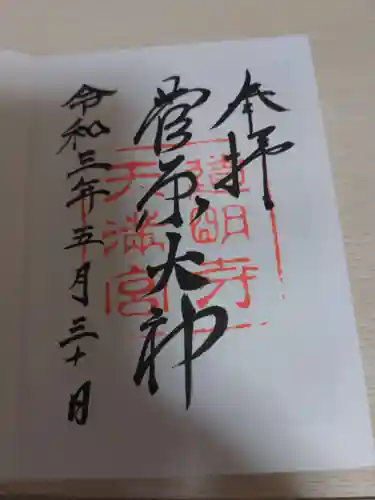 奉拝
菅原大神
令和三年五月三十日
道明寺
天満宮